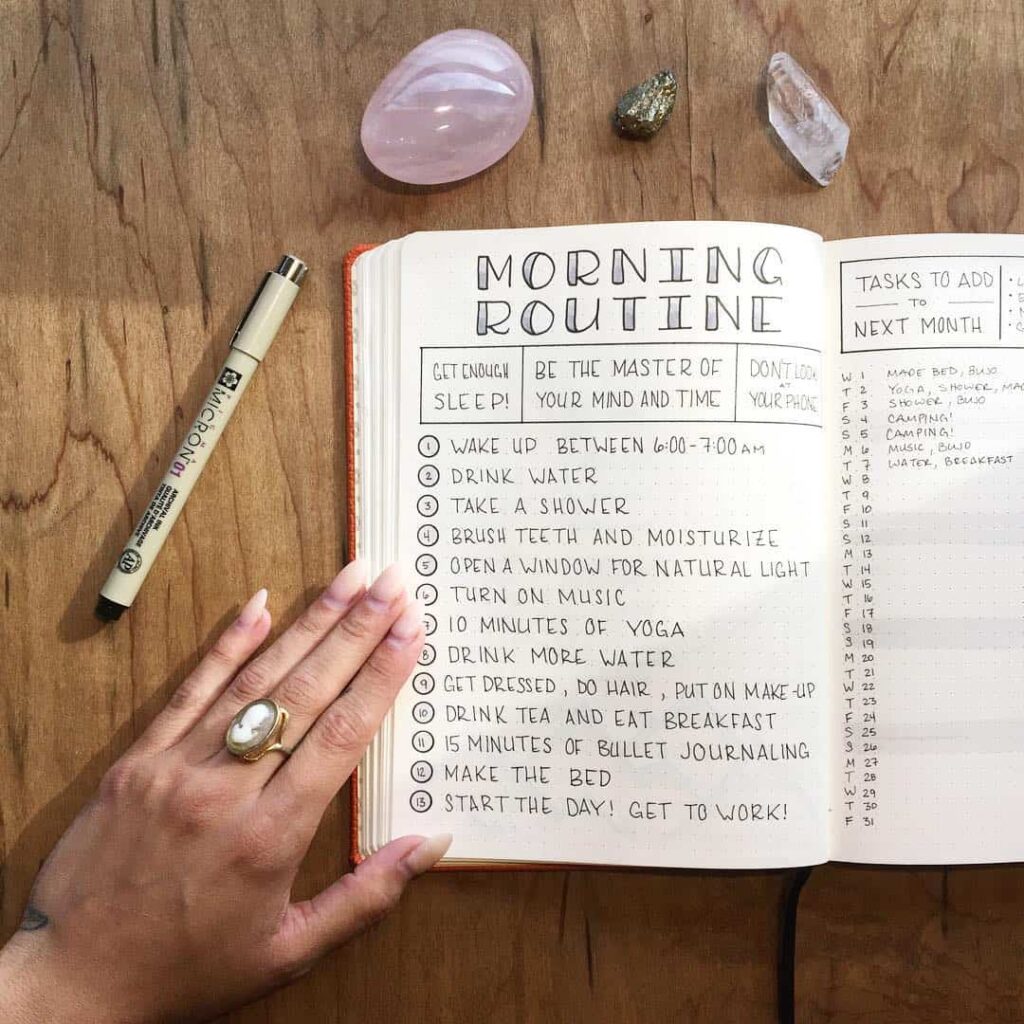 MICRON 01
ARCHIVAL INK
QUALITÉ D'ARCHIVAGE
TINTA DE ARCHIVO
AP
MORNING
ROUTINE
GET ENOUGH
SLEEP!
BE THE MASTER OF
YOUR MIND AND TIME
DON'T LOOK
AT
YOUR PHONE
1 WAKE UP BETWEEN 6:00-7:00 AM
2 DRINK WATER
3 TAKE A SHOWER
4 BRUSH TEETH AND MOISTURIZE
5 OPEN A WINDOW FOR NATURAL LIGHT
6 TURN ON MUSIC
7 10 MINUTES OF YOGA
8 DRINK MORE WATER
9 GET DRESSED, DO HAIR, PUT ON MAKE-UP
10 DRINK TEA AND EAT BREAKFAST
11 15 MINUTES OF BULLET JOURNALING
12 MAKE THE BED
13 START THE DAY! GET TO WORK!
TASKS TO ADD
TO
NEXT MONTH
W 1 MADE BED, BUJO
T 2 YOGA, SHOWER,
F 3 SHOWER, BUJO
S 4 CAMPING!
S 5 CAMPING!
M 6 MUSIC, BUJO
T 7 WATER, BREAKFAST
W 8
T 9
F 10
S 11
S 12
M 13
T 14
W 15
T 16
F 17
S 18
S 19
M 20
T 21
W 22
T 23
F 24
S 25
S 26
M 27
T 28
W 29
T 30
F 31